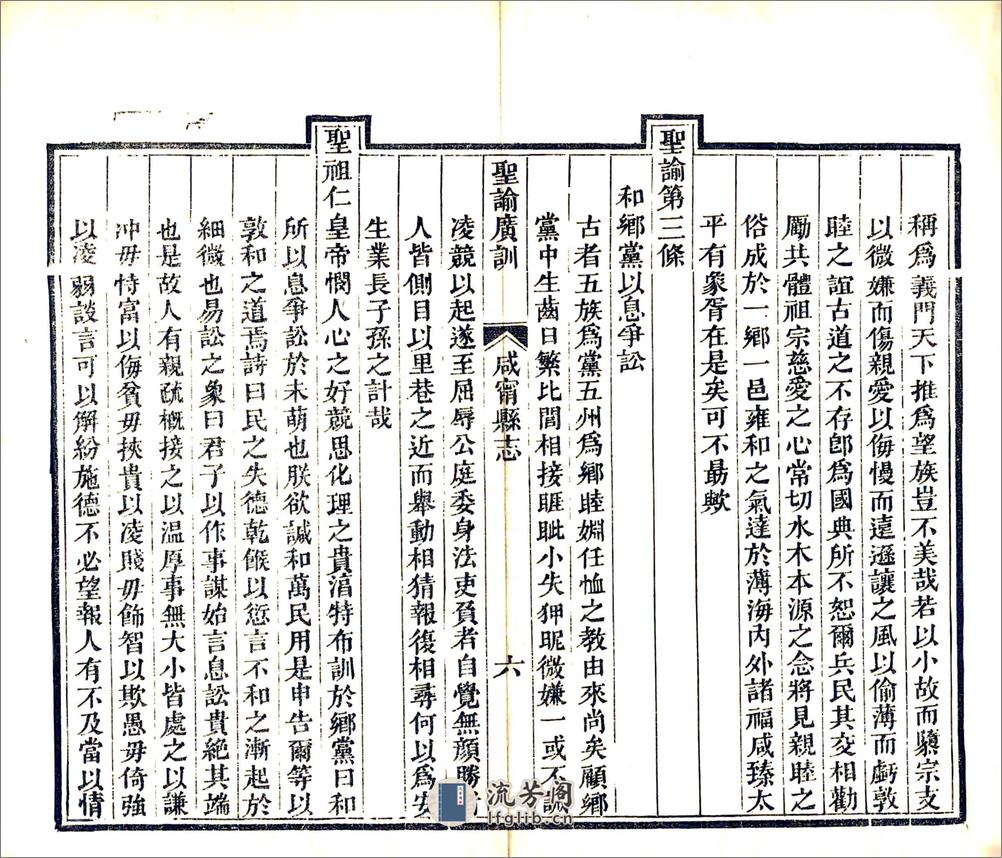 稱爲義門天下推爲望族豈不美哉若以小故而隳宗支
以微嫌而傷親愛以侮慢而違遜讓之風以偷薄而虧敦
睦之誼古道之不存卽爲國典所不恕爾兵民其交相勸
勵共體祖宗慈愛之心常切水木本源之念將見親睦之
俗成於一鄉一邑雍和之氣達於薄海內外諸福咸臻太
平有象胥在是矣可不勗歟
聖諭第三條
和鄉黨以息爭訟
古者五族爲黨五州爲鄉睦婣任恤之教由來尚矣顧鄉
黨中生齒日繁比閭相接睚眦小失狎昵微嫌一或不誡
聖諭廣訓
咸甯縣志
六
凌競以起遂至屈辱公庭委身法吏負者自覺無顏勝
人皆側目以里巷之近而舉動相猜報復相尋何以爲安
生業長子孫之計哉
聖祖仁皇帝憫人心之好競思化理之貴湻特布訓於鄉黨曰和
所以息爭訟於未萌也朕欲諴和萬民用是申告爾等以
敦和之道焉詩曰民之失德乾餱以愆言不和之漸起於
細微也易訟之象曰君子以作事謀始言息訟貴絶其端
也是故人有親疏槪接之以温厚事無大小皆處之以謙
冲毋恃富以侮貧毋挾貴以凌賤毋飾智以欺愚毋倚強
以凌弱談言可以解紛施德不必望報人有不及當以情
流芳阁
lfglib.cn